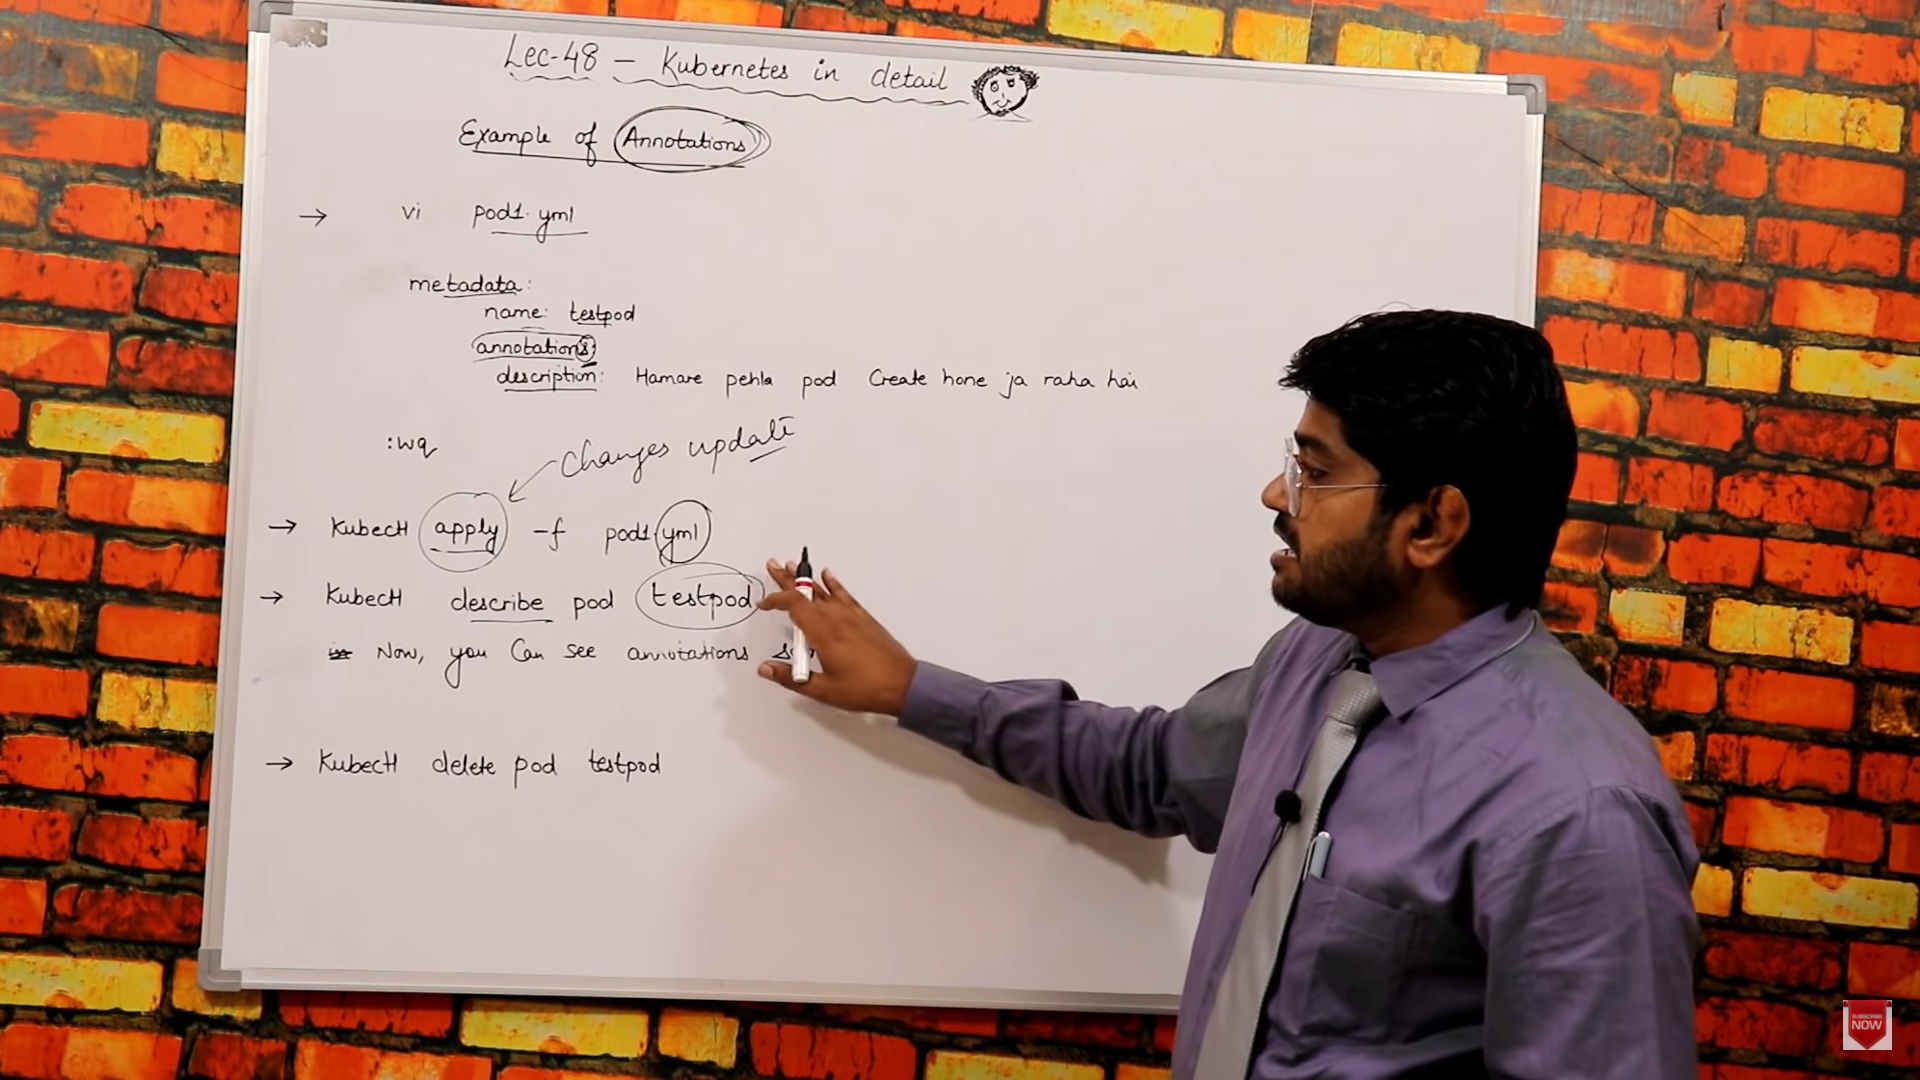 Lec-48 – Kubernetes in detail
Example of Annotations
→ vi pod1.yml
metadata:
name: testpod
annotations:
description: Hamare pehla pod Create hone ja raha hai
:wq
changes update
→ Kubectl apply -f pod1.yml
→ Kubectl describe pod testpod
Now, you Can see annotations
→ Kubectl delete pod testpod
SUBSCRIBE
NOW